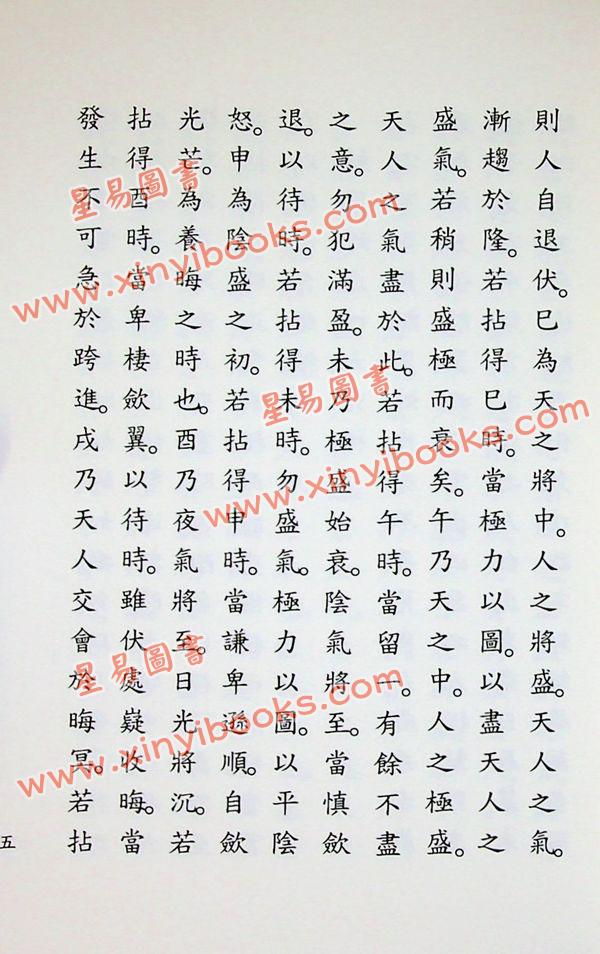 則人自退伏。巳為天之將中。人之將盛。天人之氣。
漸趨於隆。若拈得巳時。當極力以圖。以盡天人之
盛氣。若稍則盛極而衰矣。午乃天之中。人之極盛。
天人之氣盡於此。若拈得午時。當留一。有餘不盡
之意。勿犯滿盈。未乃極盛始衰。陰氣將至。當慎斂
退。以待時。若拈得未時。勿盛氣。極力以圖。以平陰
怒。申為陰盛之初。若拈得申時。當謙卑遜順。自斂
光芒。為養晦之時也。酉乃夜氣將至。日光將沉。若
拈得酉時。當卑棲斂翼。以待時。雖伏處嶷收晦。當
發生不可急於跨進。戌乃天人交會於晦冥。若拈
五
星易圖書
www.xinyibooks.com
星易圖書
www.xinyibooks.com
星易圖書
www.xinyibooks.com